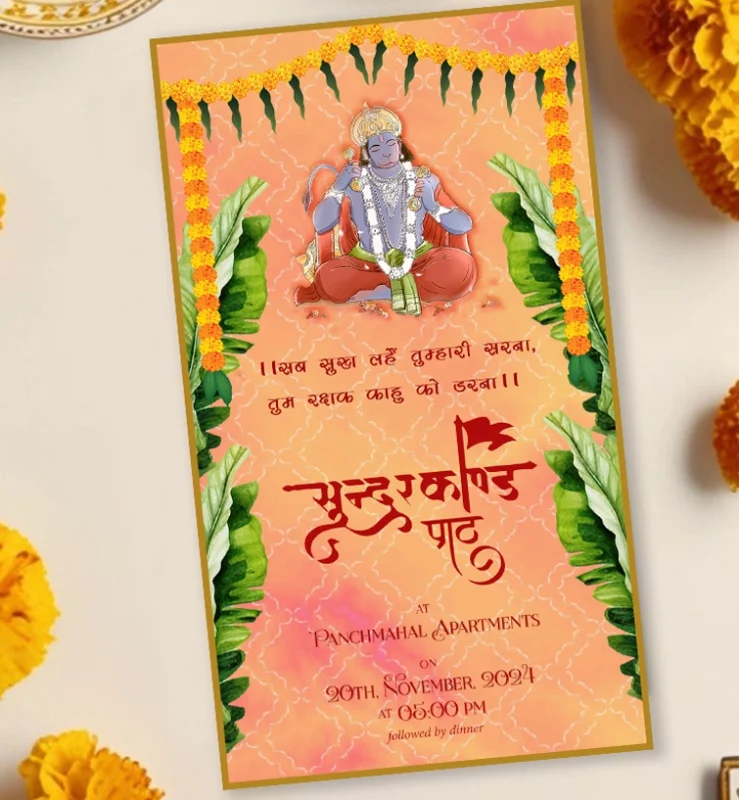 ।।सब सुख लहैं तुम्हारी सरना,
तुम रक्षक काहु को डरना।।
सुन्दरकाण्ड
पाठ
AT
PANCHMAHAL APARTMENTS
ON
20TH, NOVEMBER, 2024
AT 05:00 PM
followed by dinner